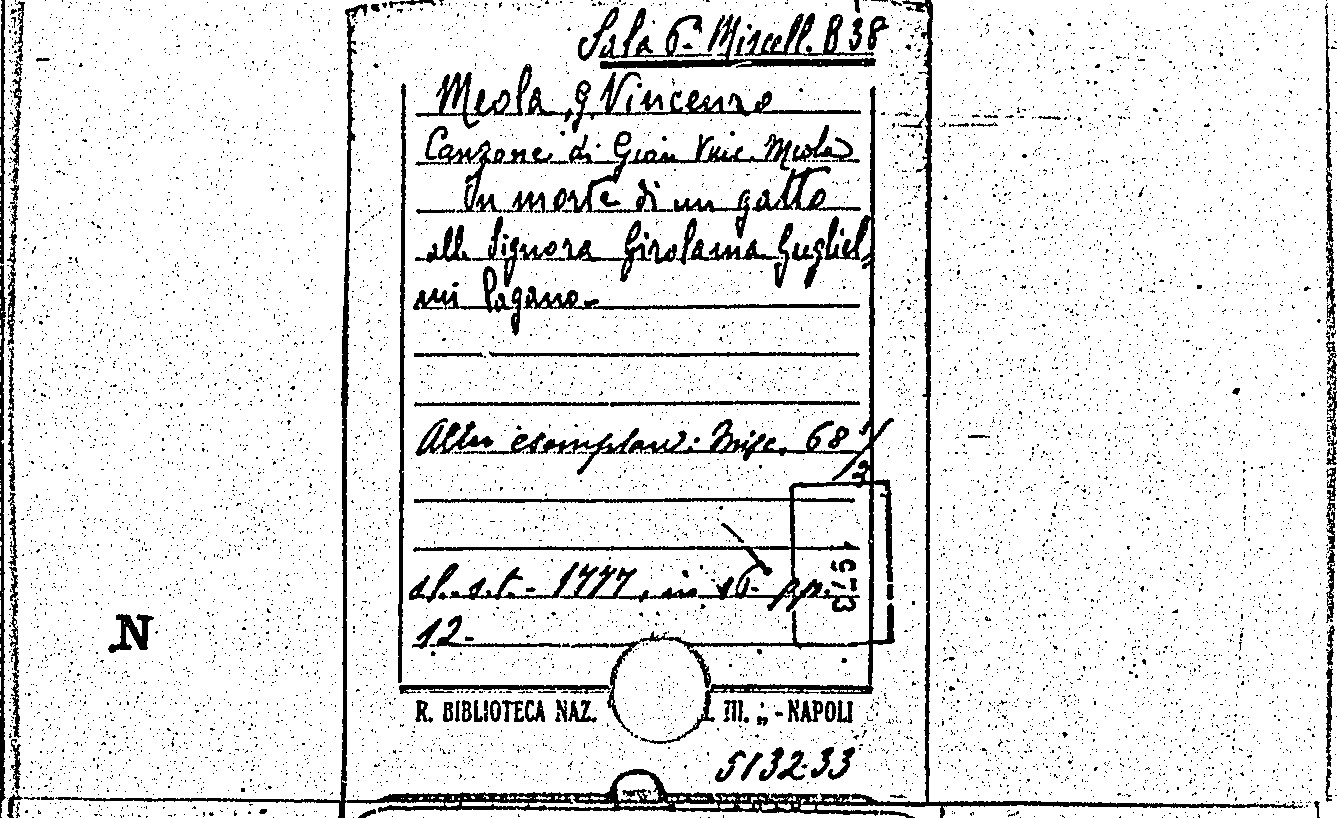 Sala 6ª Miscell. B 38
Meola, g. Vincenzo
Canzone di Gian Vinc. Meola
In morte di un gatto
alla Signora Girolama Gugliel-
mi Pagano.
Altro esemplare: Misc. 68 1/2
sl. s.t. - 1777, in 16° pp.
12.
N
R. BIBLIOTECA NAZ. III. „ - NAPOLI
513233